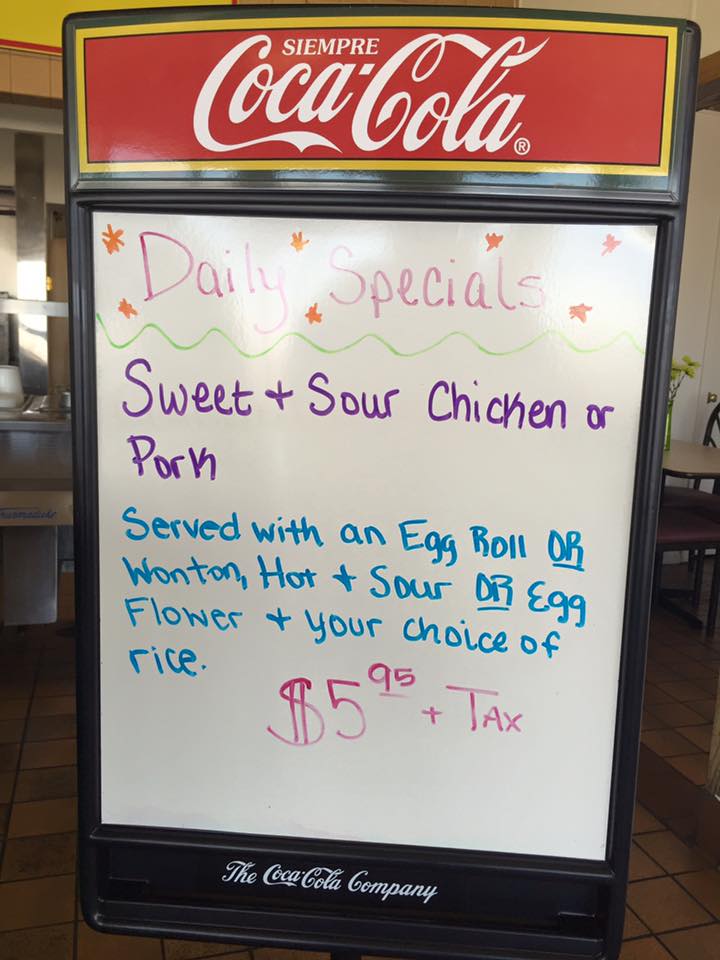 SIEMPRE
Coca-Cola®
Daily Specials
Sweet + Sour Chicken or
Pork
Served with an Egg Roll OR
Wonton, Hot + Sour OR Egg
Flower + your choice of
rice.
$5 95 + TAX
The Coca-Cola Company